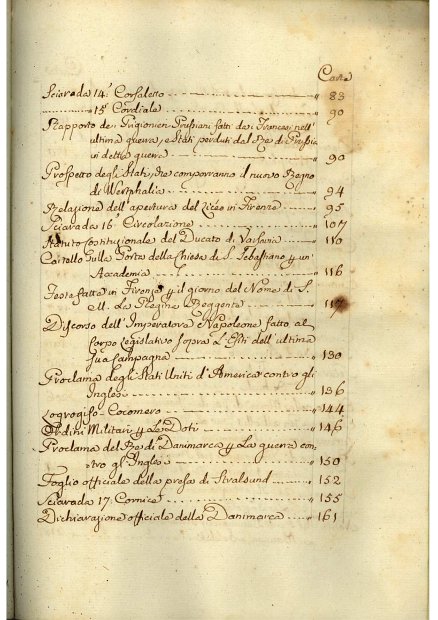 Carte
Sciarada 14.ª Corsaletto " 83
15.ª Cordiale " 90
Rapporto de' Prigionieri Prussiani fatti dai Francesi nell'
ultima guerra, e Stati perduti dal Re di Prussia
in detta guerra " 90
Prospetto degli Stati, che comporranno il nuovo Regno
di Westphalia " 94
Relazione dell'apertura del Liceo in Firenze " 95
Sciarada 16.ª Circolazione " 107
Statuto Costituzionale del Ducato di Varsavia " 110
Cartello sulla Porta della Chiesa di S. Sebastiano un'
Accademia " 116
Feste fatte in Firenze il giorno del Nome di S.
M. La Regina Reggente " 117
Discorso dell'Imperatore Napoleone fatto al
Corpo Legislativo sopra L'Esiti dell'ultima
sua Campagna " 130
Proclama degli Stati Uniti d'America contro gli
Inglesi " 136
Logogrifo Cocomero " 144
Ordini Militari La Doti " 146
Proclama del Re di Danimarca La guerra con-
tro gl'Inglesi " 150
Foglio officiale della presa di Stralsund " 152
Sciarada 17. Cornice " 155
Dichiarazione officiale della Danimarca " 161